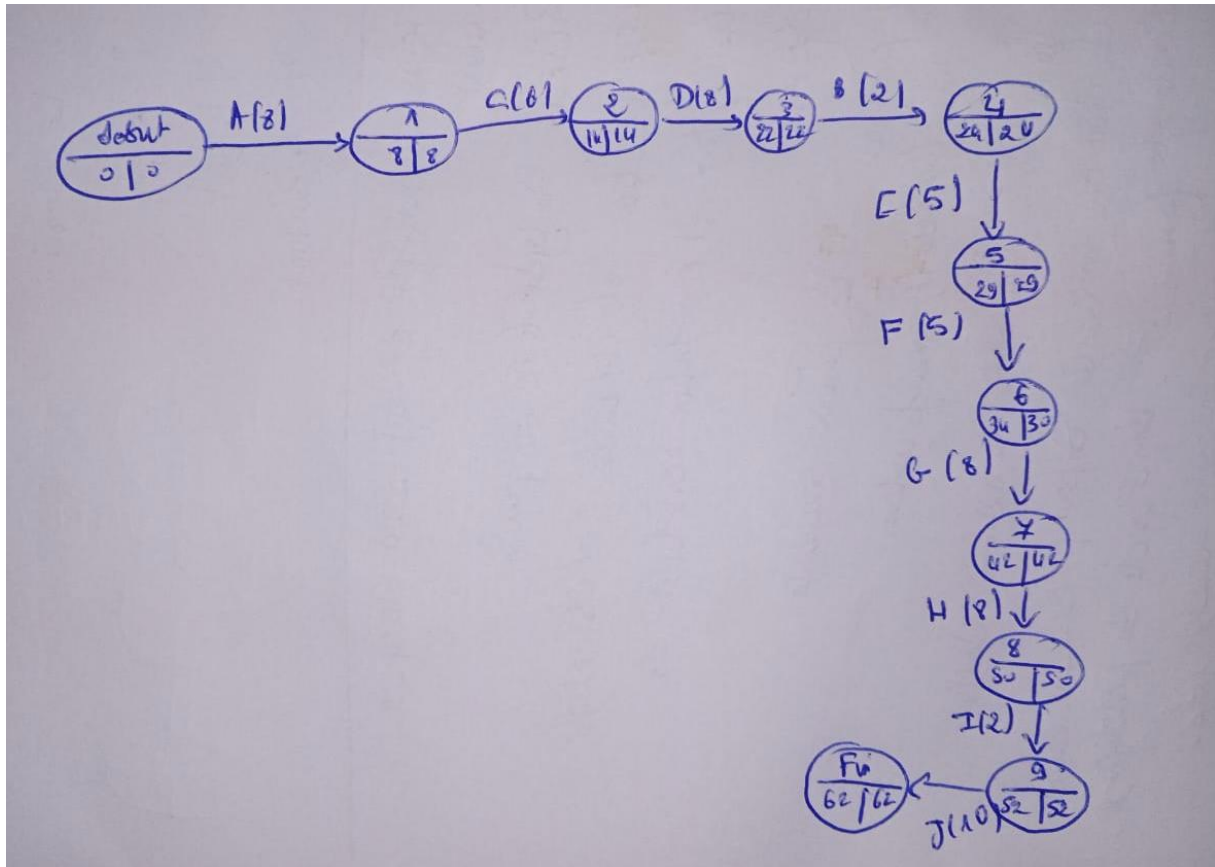 début
0 | 0
A(8)
1
8 | 8
C(6)
2
14 | 14
D(8)
3
22 | 22
B(2)
4
24 | 24
E(5)
5
29 | 29
F(5)
6
34 | 30
G(8)
7
42 | 42
H(8)
8
50 | 50
I(2)
9
52 | 52
J(10)
Fin
62 | 62